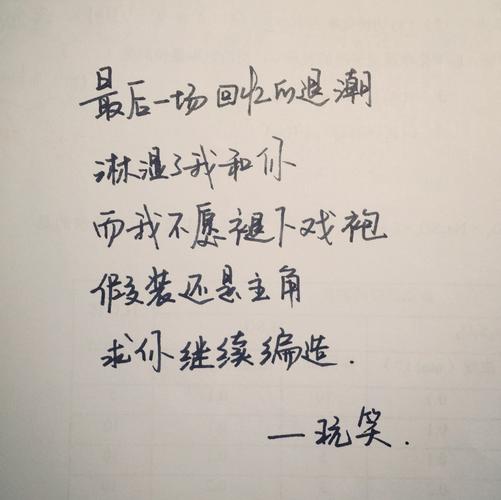 最后一场回忆的退潮
淋湿了我和你
而我不愿褪下戏袍
假装还是主角
求你继续编造.
—玩笑.